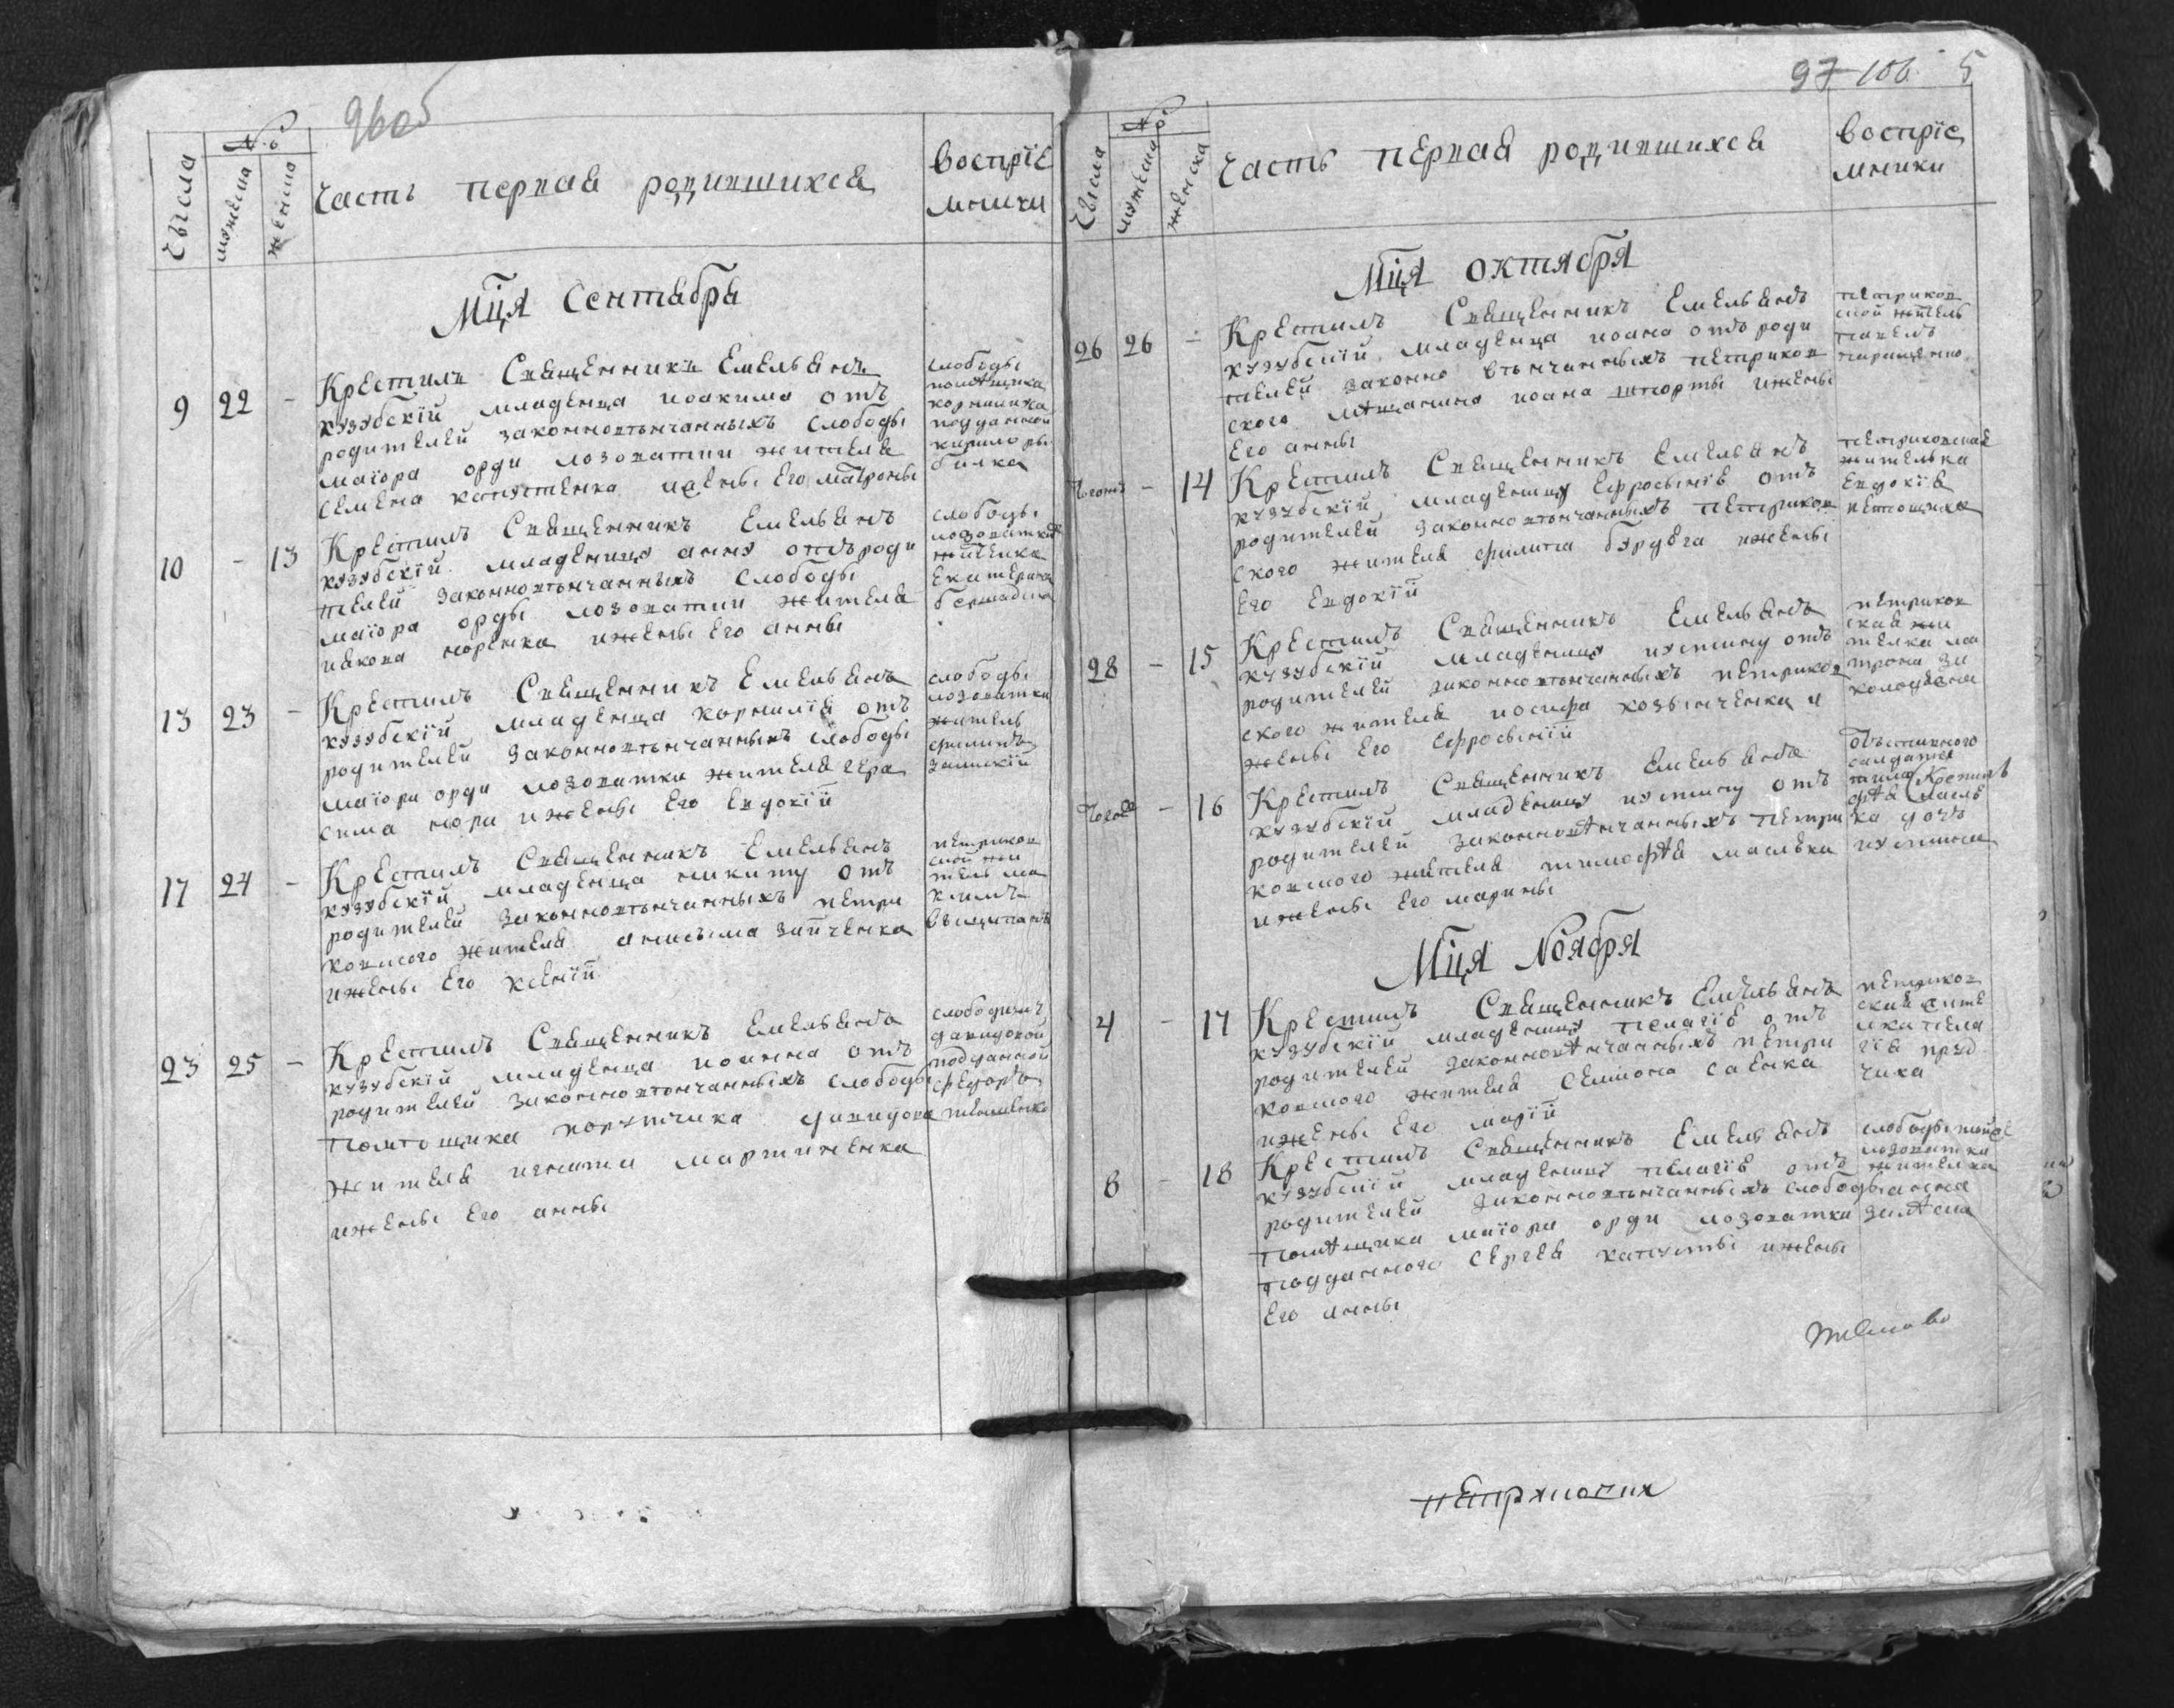 96об
Числа
№
мужеска
женска
Часть первая родившихся
Воспріе
мники
Мця Сентября
9 22 -
Крестилъ Священникъ Емельянъ
кузубскій младенца иоакима отъ
родителей законновѣнчанныхъ Слободы
маіора орди лозоватки жителя
Семена капустенка ижены Его Матроны
слободы
помѣщика
подданной
10 - 13
Крестилъ Священникъ Емельянъ
кузубскій младеницу анну отъ роди
телей законновѣнчанныхъ Слободы
маіора орды лозоватки жителя
иакова норенка ижены Его анны
слободы
лозоватки
жителка
Екатерина
13 23 -
Крестилъ Священникъ Емельянъ
кузубскій младенца корнилія отъ
родителей законновѣнчанныхъ слободы
маіора орди лозоватки жителя гера
сима нори ижены Его Евдокіи
слободы
лозоватки
житель
филипъ
17 24 -
Крестилъ Священникъ Емельянъ
кузубскій младенца никиту отъ
родителей законновѣнчанныхъ петри
ковского жителя анисыма зайченка
ижены Его Ксеніи
петриков
ской жи
тель ма
ксимъ
23 25 -
Крестилъ Священникъ Емельянъ
кузубскій младенца иоанна отъ
родителей законновѣнчанныхъ слободы
помѣщика порутчика давидова
жителя игната мартиненка
ижены Его анны
давидовой
подданной
федоръ
97 106 5
Числа
№
мужеска
женска
Часть первая родившихся
Воспріе
мники
Мця октября
26 26 -
Крестилъ Священникъ Емельянъ
кузубскій младенца иоана отъ роди
телей законно вѣнчанныхъ петриков
ского мѣщанина иоана шпорты ижены
Его анны
петриков
ской житель
павелъ
парищенко
- 14
Крестилъ Священникъ Емельянъ
кузубскій младеницу Ефросынію отъ
родителей законновѣнчанныхъ петриков
ского жителя филипа бурдега ижены
Его Евдокіи
петриковская
жителька
Евдокія
28 - 15
Крестилъ Священникъ Емельянъ
кузубскій младеницу иустину отъ
родителей законновѣнчанныхъ петриков
ского жителя иосифа козынченка и
жены Его Ефросыніи
петриков
ская жи
телка ма
трона
- 16
Крестилъ Священникъ Емельянъ
кузубскій младеницу иустину отъ
родителей законновѣнчанныхъ петри
ковского жителя тимофѣя маслѣка
ижены Его марины
салдата
ка дочъ
иустина
Мця Ноября
4 - 17
Крестилъ Священникъ Емельянъ
кузубскій младеницу пелагію отъ
родителей законновѣнчанныхъ петри
ковского жителя Семиона Саенка
ижены Его маріи
петриков
ская жите
лка пела
гія
8 - 18
Крестилъ Священникъ Емельянъ
кузубскій младеницу пелагію отъ
родителей законновѣнчанныхъ слободы
помѣщика маіора орди лозоватки
подданного Сергея капусты ижены
Его анны
слободы
лозоватки
жителка
анна